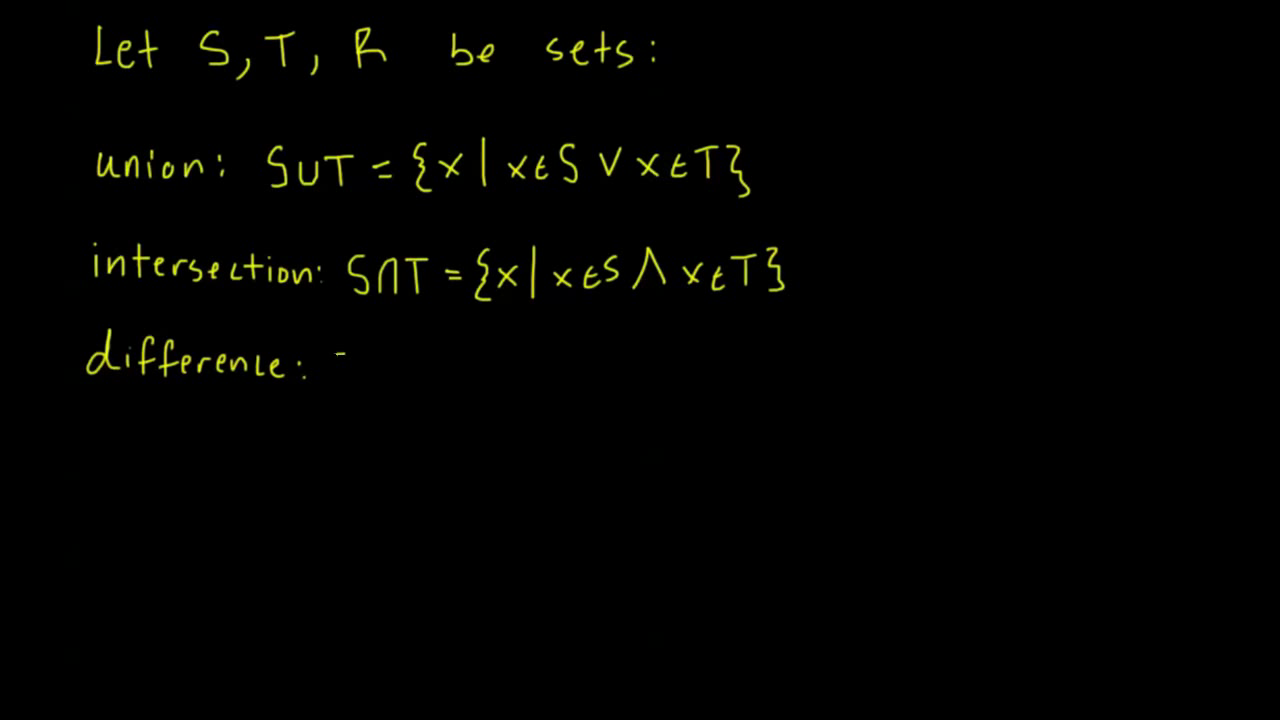 Let S, T, R be sets:
union: S∪T = {x | x∈S ∨ x∈T}
intersection: S∩T = {x | x∈S ∧ x∈T}
difference: